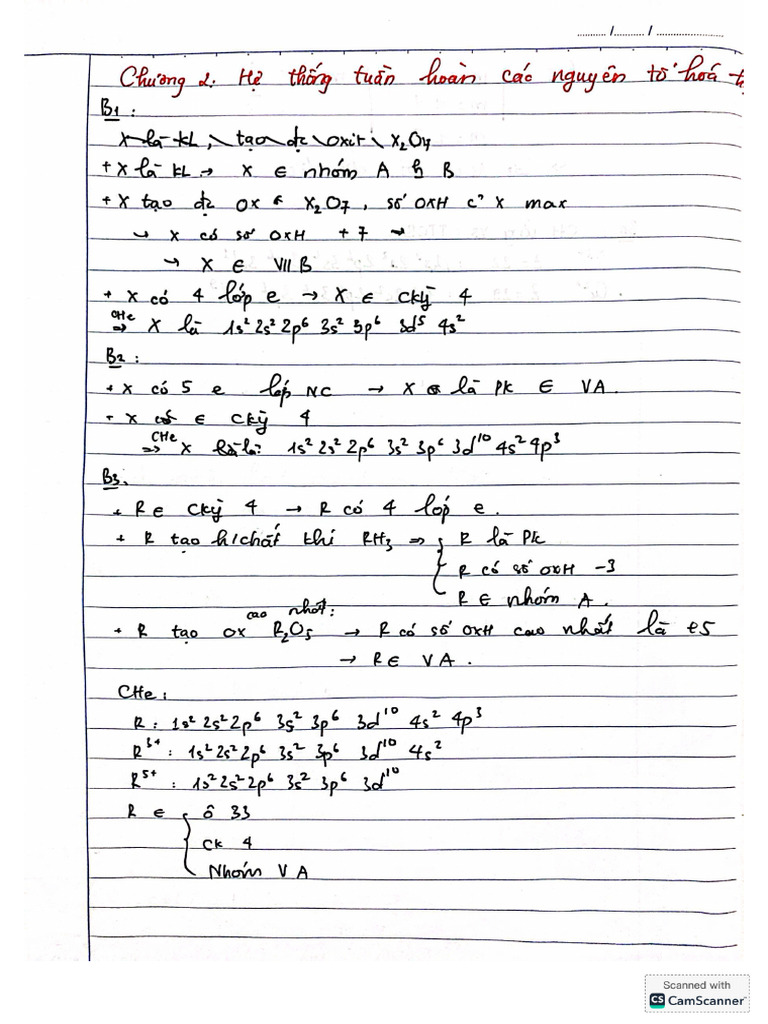 ........ /........ / ..................
Chương 2: Hệ thống tuần hoàn các nguyên tố hoá
B1:
X là KL, tạo đc oxit X₂O₇
+ X là KL → X ∈ nhóm A B
+ X tạo đc ox X₂O₇, số OXH c² X max
↪ X có số OXH +7
↪ X ∈ VII B
+ X có 4 lớp e → X ∈ Ckỳ 4
CHe ⇒ X là 1s² 2s² 2p⁶ 3s² 3p⁶ 3d⁵ 4s²
B2:
+ X có 5 e lớp NC → X là PK ∈ VA.
+ X ∈ Ckỳ 4
CHe ⇒ X là: 1s² 2s² 2p⁶ 3s² 3p⁶ 3d¹⁰ 4s² 4p³
B3.
+ R ∈ Ckỳ 4 → R có 4 lớp e.
+ R tạo h/chất khí RH₃ ⇒ { R là PK
R có số OXH -3
R ∈ nhóm A.
+ R tạo ox cao nhất: R₂O₅ → R có số OXH cao nhất là +5
→ R ∈ VA.
CHe:
R: 1s² 2s² 2p⁶ 3s² 3p⁶ 3d¹⁰ 4s² 4p³
R³⁺: 1s² 2s² 2p⁶ 3s² 3p⁶ 3d¹⁰ 4s²
R⁵⁺: 1s² 2s² 2p⁶ 3s² 3p⁶ 3d¹⁰
R ∈ { ô 33
CK 4
Nhóm V A
Scanned with
CS CamScanner